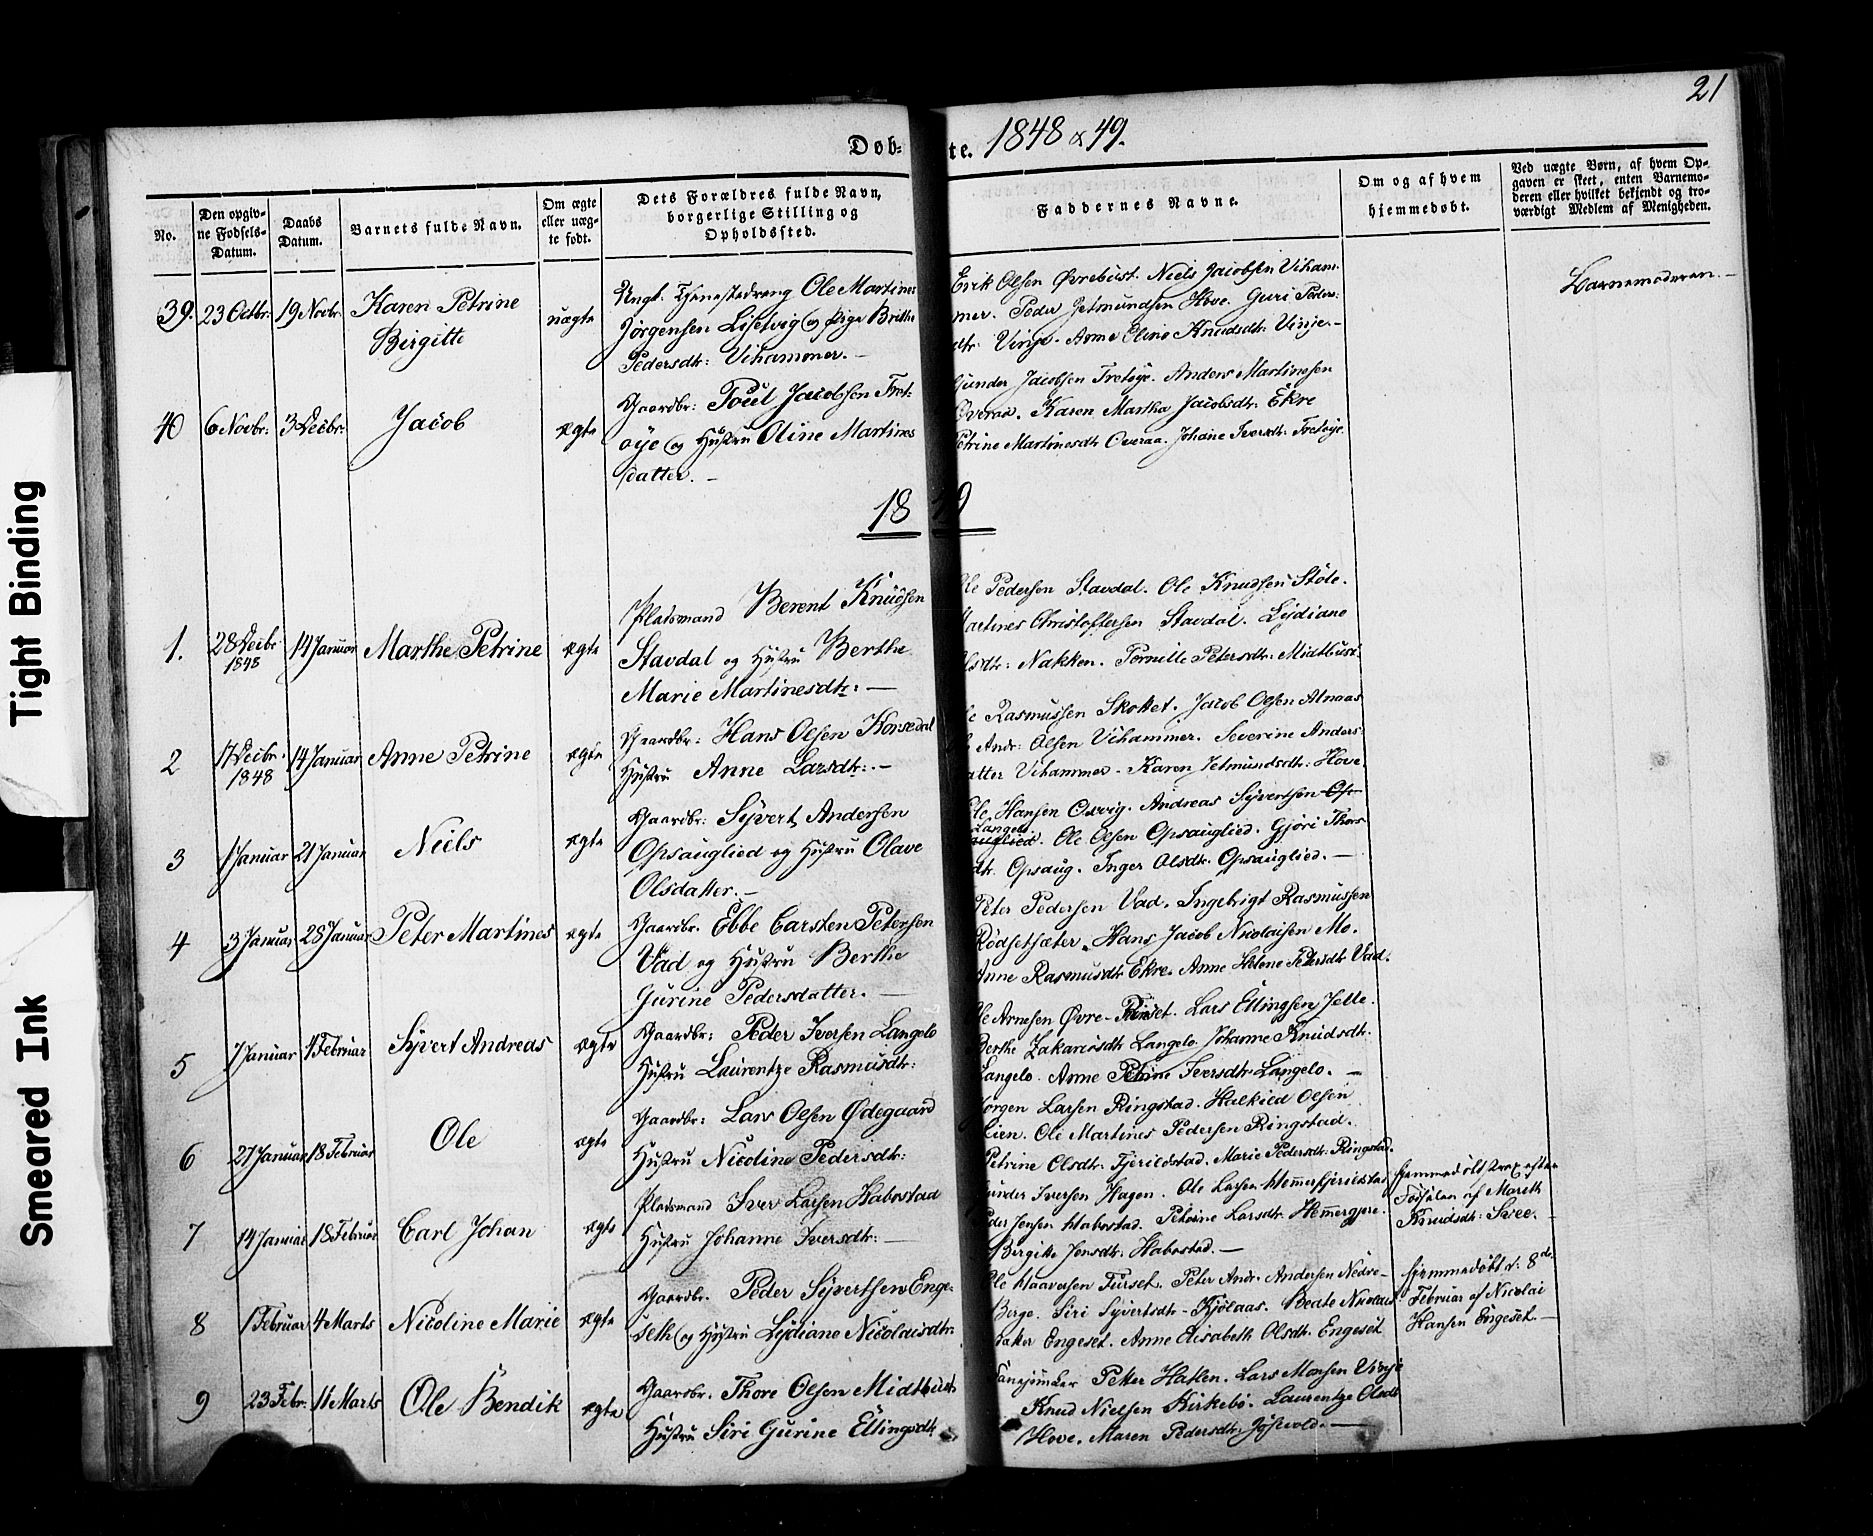 21
Døb-te. 1848 & 49.
No.
Den opgiv-
ne Fødsels-
Datum.
Daabs
Datum.
Barnets fulde Navn.
Om ægte
eller uæg-
te født.
Dets Forældres fulde Navn,
borgerlige Stilling og
Opholdssted.
Faddernes Navne.
Om og af hvem
hjemmedøbt.
Ved uægte Børn, af hvem Op-
gaven er skeet, enten Barnemo-
deren eller hvilket bekjendt og tro-
værdigt Medlem af Menigheden.
39. 23 Octbr: 19 Novbr: Karen Petrine
Birgitte
uægte
Ungk. Tjenestedreng Ole Martines
Jørgensen Lisetvig og Pige Brithe
Pedersdtr: Vihammer. —
Erik Olsen Øvrebust. Niels Jacobsen Viham-
mer. Peder Jetmundsen Hove. Guri Peders-
dtr: Vinje. Anne Eline Knudsdtr: Vinje. —
Barnemoderen. —
40 6 Novbr: 3 Decbr: Jacob ægte
Gaardbr: Poul Jacobsen Tret-
øye og Hustru Oline Martines
datter. —
Gunder Jacobsen Tretøye. Anders Martinesen
Overaa. Karen Martha Jacobsdtr: Ekre
Petrine Martinesdtr Overaa. Johane Iversdtr: Tretøye.
1849
1. 28 Decbr 1848 14 Januar Marthe Petrine ægte
Pladsmand Berent Knudsen
Stavdal og Hustru Berthe
Marie Martinesdtr: —
Ole Pedersen Stavdal. Ole Knudsen Støle.
Martines Christoffersen Stavdal. Lydiane
Olsdtr: Nakken. Pernille Petersdtr: Midtbust.
2 17 Decbr: 1848 14 Januar Anne Petrine ægte
Gaardbr: Hans Olsen Korsedal
Hustru Anne Larsdtr: —
Rasmussen Skottet. Jacob Olsen Alnaas
Andr: Olsen Vihammer. Severine Anders-
datter Vihammer. Karen Jetmundsdtr: Hove
3 1 Januar 21 Januar Niels ægte
Gaardbr: Syvert Andersen
Opsauglied og Hustru Olave
Olsdatter. —
Ole Hansen Osvig. Andreas Syvertsen Ops-
Langelo.
auglied. Ole Olsen Opsauglied. Gjøri Thors-
dtr. Opsaug. Inger Olsdtr. Opsauglied. —
4 3 Januar 28 Januar Peter Martines ægte
Gaardbr. Ebbe Carsten Petersen
Vad og Hustru Berthe
Gurine Pedersdatter. —
Peter Pedersen Vad. Ingebrigt Rasmussen
Rødsetsæter. Hans Jacob Nicolaisen Mo.
Anne Rasmusdtr Ekre. Anne Helene Pedersdtr Vad.
5 7 Januar 4 Februar Syvert Andreas ægte
Gaardbr: Peder Iversen Langelo
Hustru Laurentze Rasmusdtr:
Ole Arnesen Øvre- Lars Ellingsen Jelle.
Berthe Zakariasdtr Langelo. Johanne Knudsdtr.
Langelo. Anne Petrine Iversdtr: Langelo. —
6 27 Januar 18 Februar Ole ægte
Gaardbr: Lars Olsen Ødegaard
Hustru Nicoline Pedersdtr:
Jørgen Larsen Ringstad. Halkild Olsen
Lien. Ole Martines Pedersen Ringstad.
Petrine Olsdtr: Fjerildstad. Marie Pedersdtr: Ringstad.
7 14 Januar 18 Februar Carl Johan ægte
Pladsmand Iver Larsen Habostad
Hustru Johanne Iversdtr: —
Gunder Iversen Hagen. Ole Larsen
Peder Jensen Habostad. Petrine Larsdtr: Hemmergjære.
Birgitte Jensdtr: Habostad. —
Hjemmedøbt strax efter
Fødselen af Mareth
Knudsdtr: Svee. —
8 1 Februar 4 Marts Nicoline Marie ægte
Gaardbr. Peder Syvertsen Enge-
seth og Hustru Lydiane Nicolaisdtr:
Ole Haaversen Furset. Peter Andr. Andersen Nedre-
Berge. Siri Syvertsdtr- Kjølaas. Beate Nicolais-
datter Engeset. Anne Elisabeth Olsdtr. Engeset
Hjemmedøbt d: 8de
Februar af Nicolai
Hansen Engeset. —
9 23 Febr. 11 Marts Ole Bendik ægte
Gaardbr. Thore Olsen Midtbust
Hustru Siri Gurine Ellingsdtr.
Petter Hatlen. Lars Monsen Vinje
Knud Nielsen Kirkebø. Laurentze Olsdtr
Hove. Maren Pedersdtr: Jøsevold. —
Tight Binding
Smeared Ink